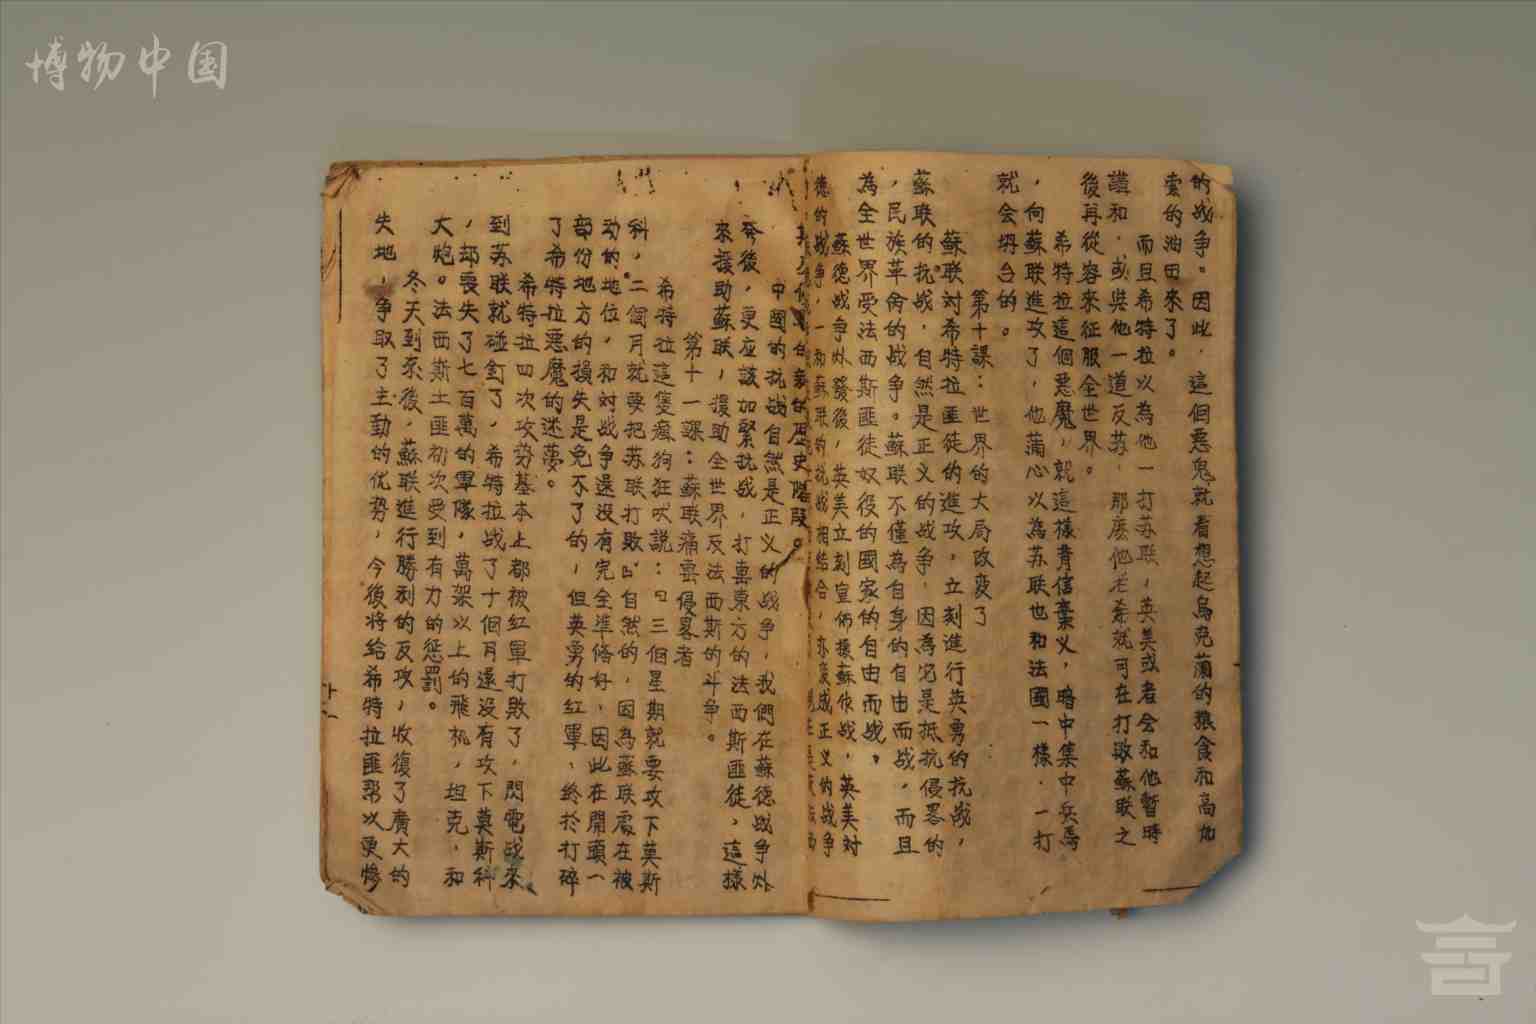 博物中国
的战争。因此，這個惡鬼就看想起烏克蘭的粮食和高加
索的油田來了。
而且希特拉以為他一打苏联，英美或者会和他暫時
講和，或與他一道反苏，那麽他老爺就可在打敗蘇联之
後再從容來征服全世界。
希特拉這個惡魔，就這樣背信棄义，暗中集中兵馬
，向蘇联進攻了，他满心以為苏联也和法國一樣，一打
就会坍台的。
第十課：世界的大局改变了
蘇联对希特拉匪徒的進攻，立刻進行英勇的抗战，
蘇联的抗战，自然是正义的战争，因為它是抵抗侵畧的
，民族革命的战争。蘇联不僅為自身的自由而战，而且
為全世界受法西斯匪徒奴役的國家的自由而战。
蘇德战争外發後，英美立刻宣佈援蘇作战，英美对
德的战争，一和蘇联的抗战相結合，亦变成正义的战争
歷史階段。
中國的抗战自然是正义的战争，我們在蘇德战争外
發後，更应該加緊抗战，打擊東方的法西斯匪徒，這樣
來援助蘇联，援助全世界反法西斯的斗争。
第十一課：蘇联痛擊侵畧者
希特拉這隻瘋狗狂吠説：「三個星期就要攻下莫斯
科，二個月就要把苏联打敗」自然的，因為蘇联處在被
动的地位，和对战争還没有完全準備好，因此在開頭一
部份地方的損失是免不了的，但英勇的紅軍，終於打碎
了希特拉惡魔的迷夢。
希特拉四次攻势基本上都被红軍打敗了，閃電战來
到苏联就碰釘了，希特拉战了十個月還没有攻下莫斯科
，却喪失了七百萬的軍隊，萬架以上的飛机，坦克，和
大炮。法西斯土匪初次受到有力的惩罰。
冬天到來後，蘇联進行勝利的反攻，收復了廣大的
失地，争取了主動的优势，今後将給希特拉匪帮以更惨